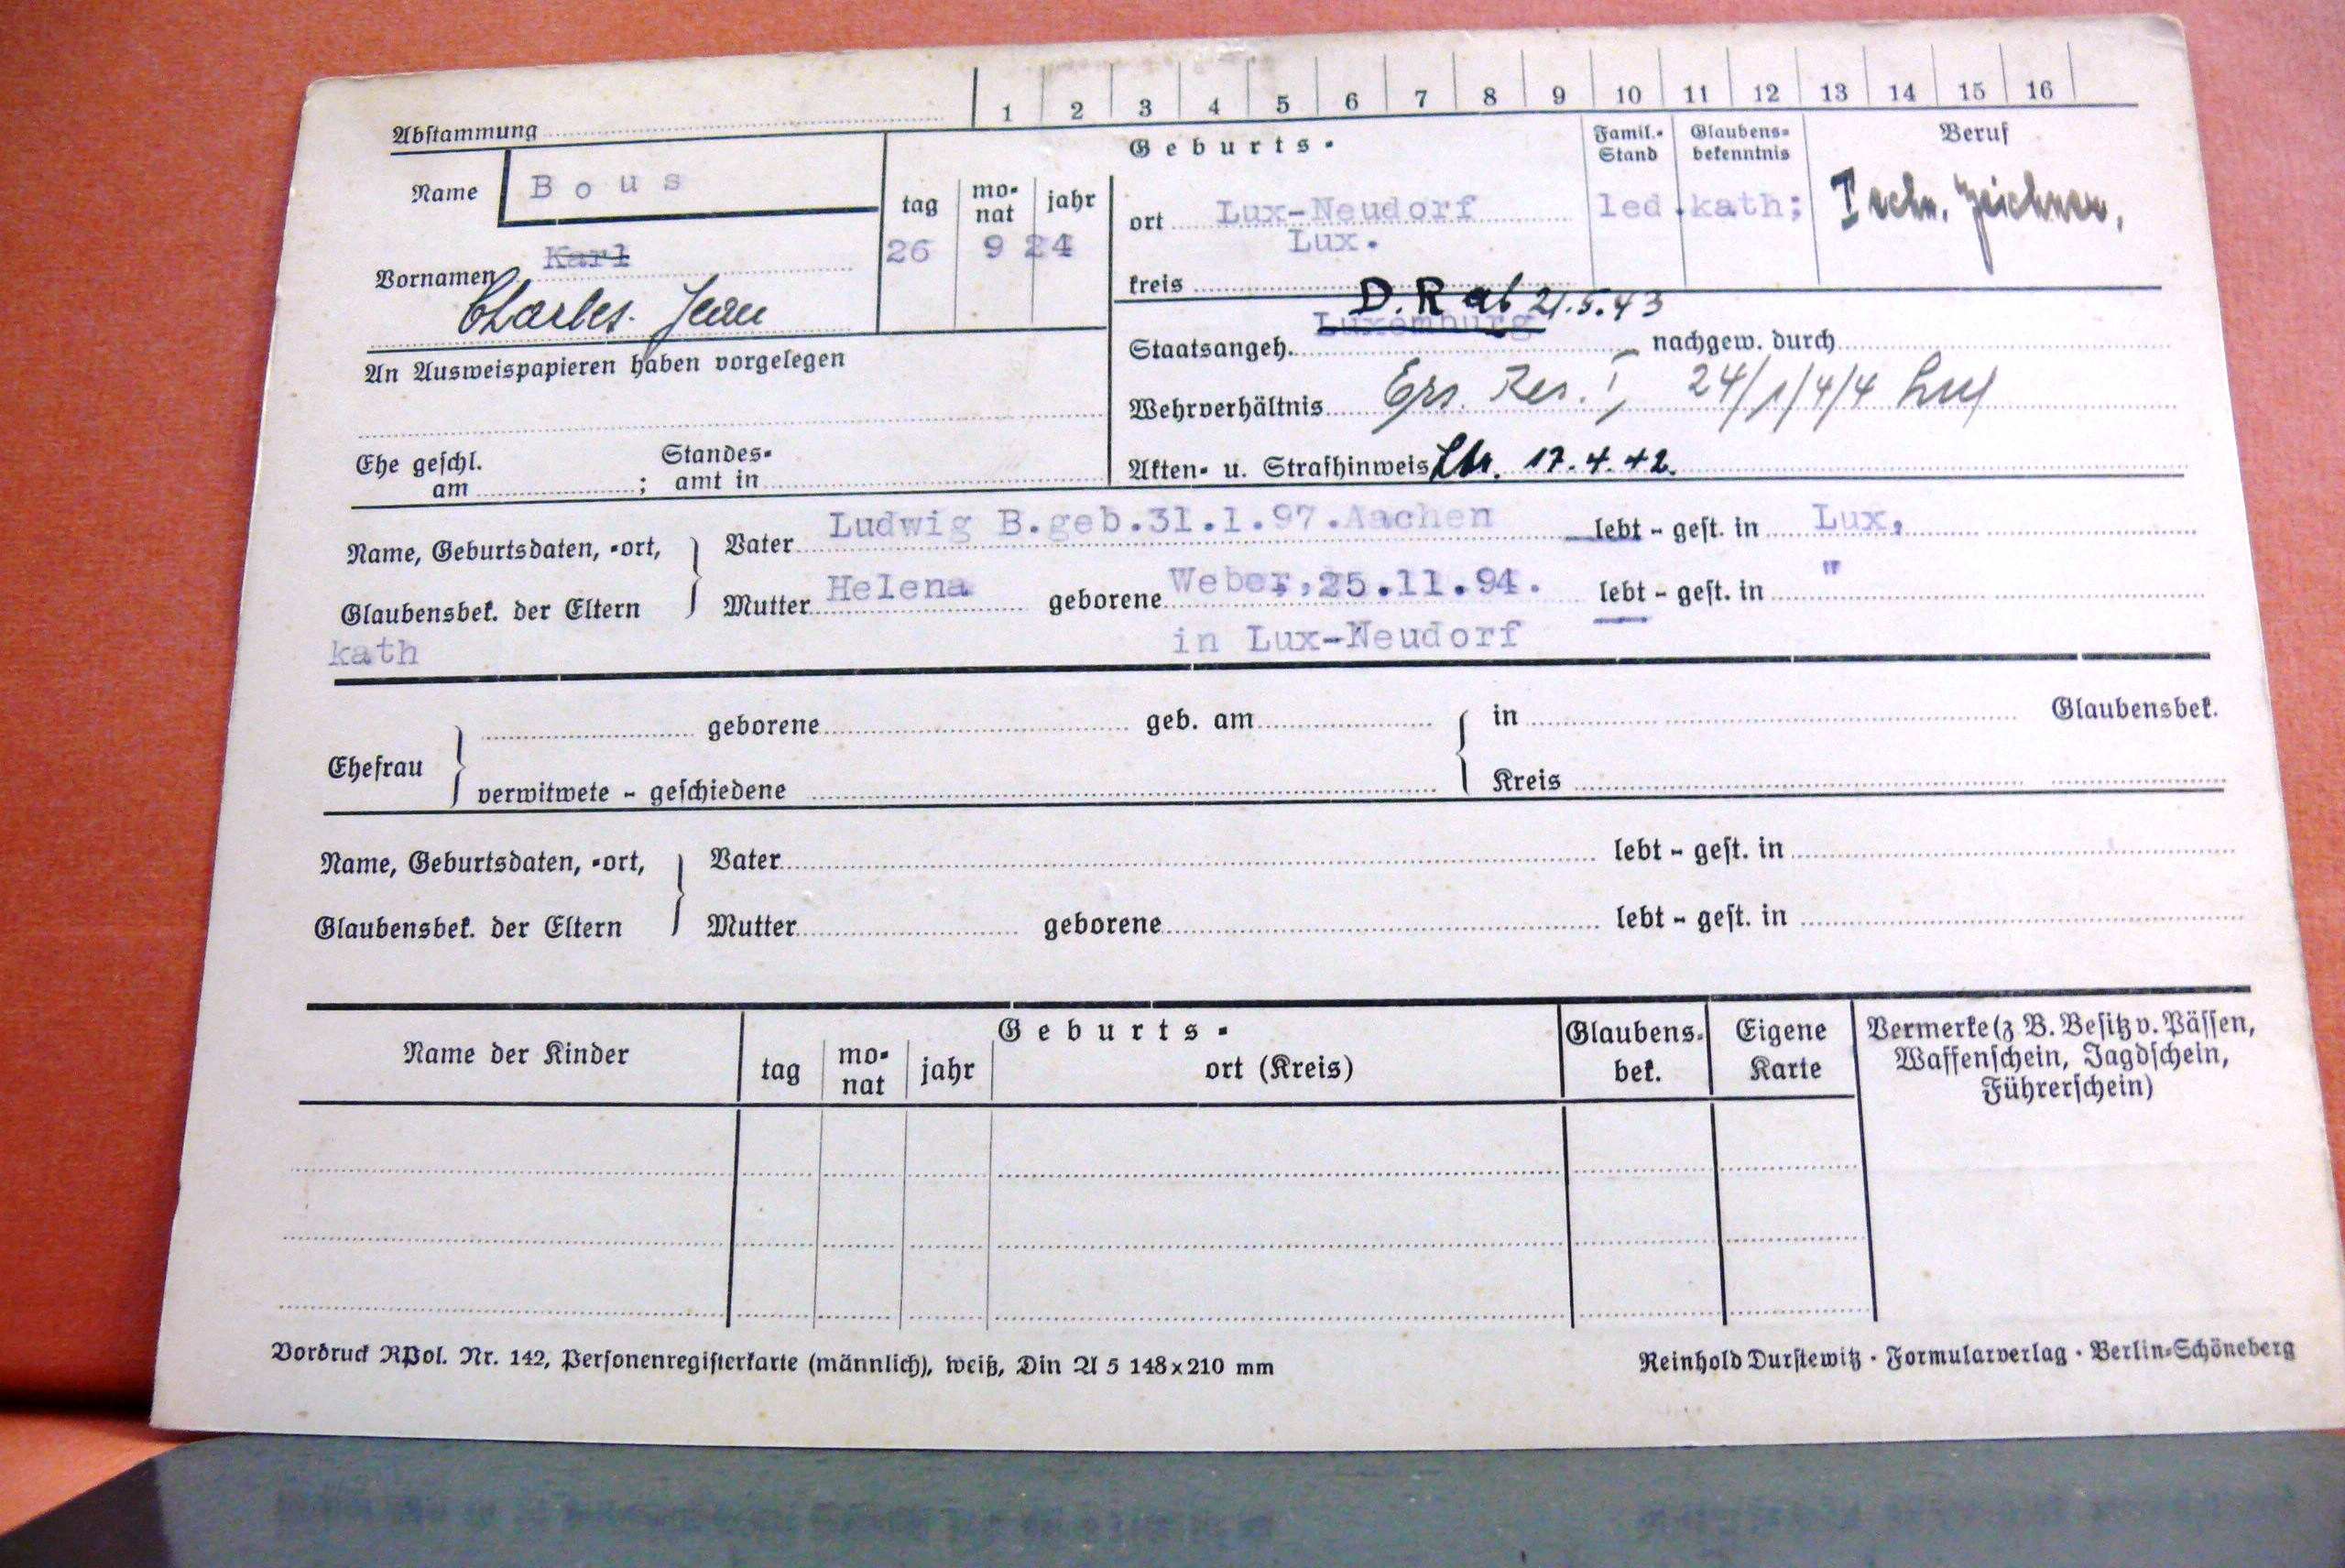 1 2 3 4 5 6 7 8 9 10 11 12 13 14 15 16
Abstammung
Name Bous
Vornamen Karl
Charles Jean
Geburts-
tag monat jahr
26 9 24
ort Lux-Neudorf
Lux.
kreis
Famil.-Stand
led.
Glaubensbekenntnis
kath;
Beruf
Techn. Zeichner,
D.R ab 21.5.43
Staatsangeh. Luxemburg nachgew. durch
An Ausweispapieren haben vorgelegen
Wehrverhältnis Ers. Res. I, 24/1/4/4
Ehe geschl. am ; Standesamt in
Akten- u. Strafhinweis 17.4.42.
Name, Geburtsdaten, -ort,
Glaubensbek. der Eltern
kath
Vater Ludwig B.geb.31.1.97.Aachen lebt - gest. in Lux,
Mutter Helena geborene Weber,25.11.94. lebt - gest. in "
in Lux-Neudorf
Ehefrau geborene geb. am in Glaubensbek.
verwitwete - geschiedene Kreis
Name, Geburtsdaten, -ort,
Glaubensbek. der Eltern
Vater lebt - gest. in
Mutter geborene lebt - gest. in
Name der Kinder
Geburts-
tag monat jahr ort (Kreis)
Glaubensbek.
Eigene Karte
Vermerke (z B. Besitz v. Pässen,
Waffenschein, Jagdschein,
Führerschein)
Vordruck RPol. Nr. 142, Personenregisterkarte (männlich), weiß, Din A 5 148x210 mm
Reinhold Durstewitz · Formularverlag · Berlin-Schöneberg